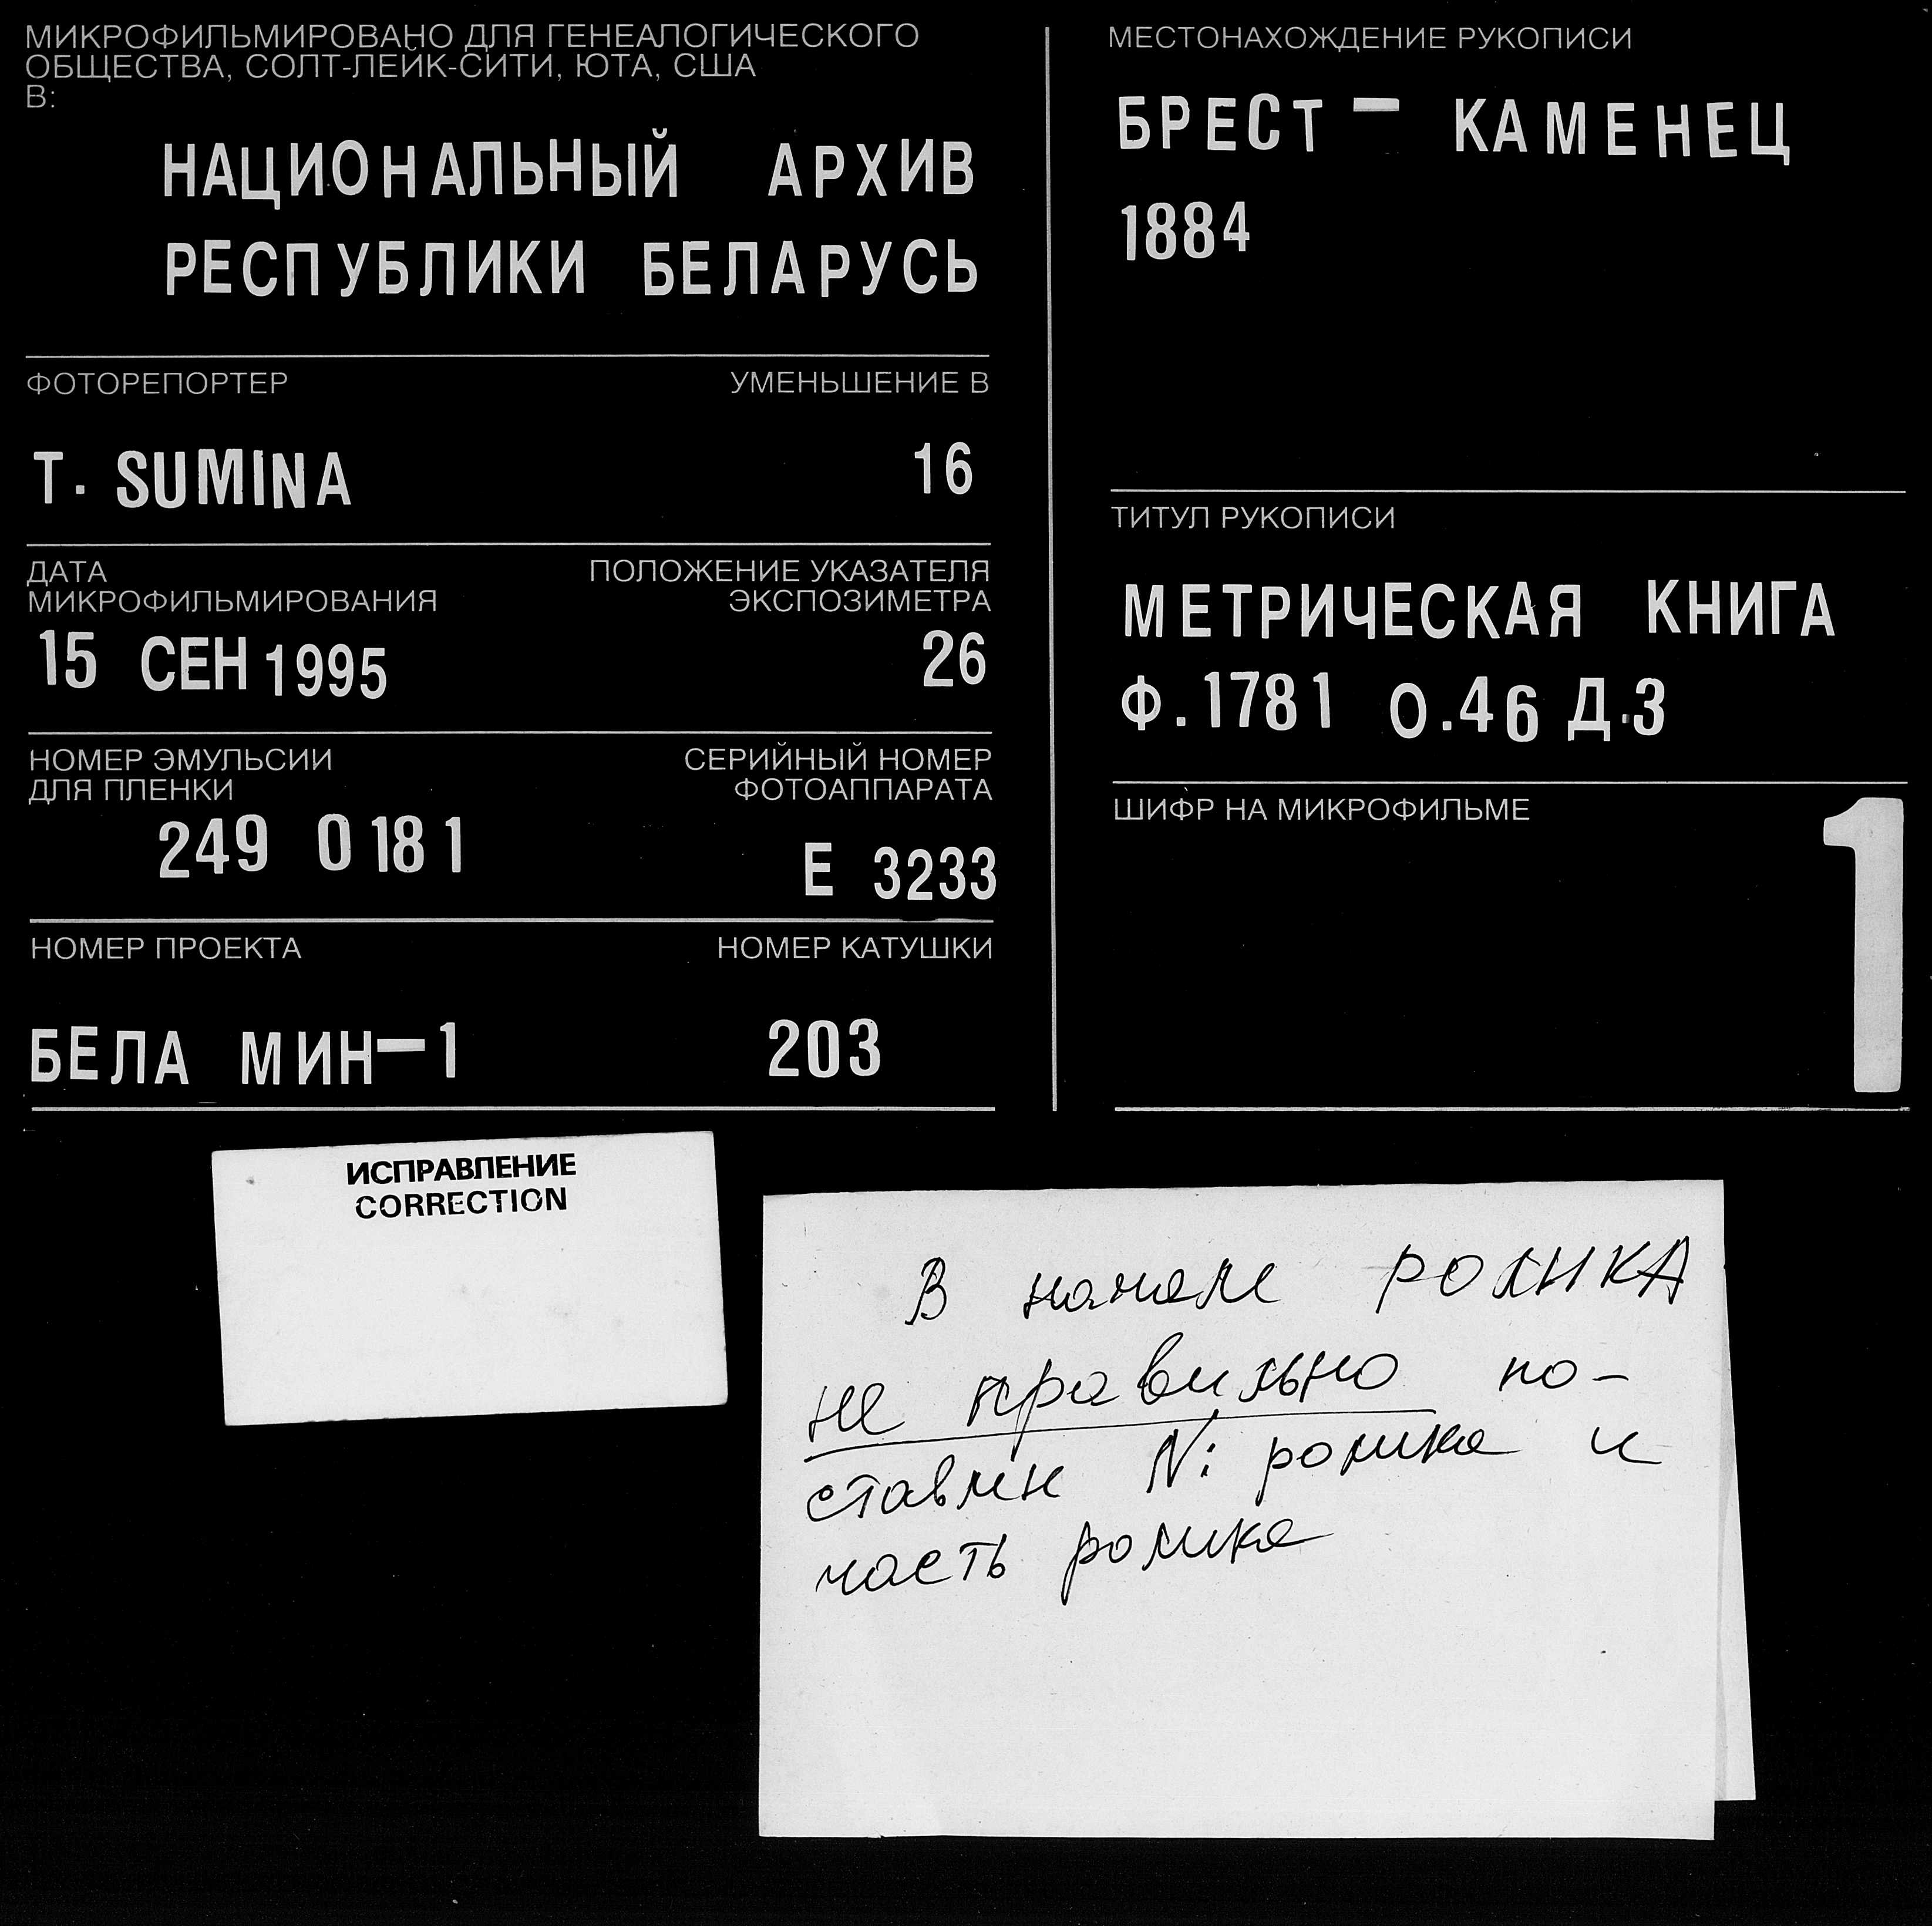 МИКРОФИЛЬМИРОВАНО ДЛЯ ГЕНЕАЛОГИЧЕСКОГО
ОБЩЕСТВА, СОЛТ-ЛЕЙК-СИТИ, ЮТА, США
В:
НАЦИОНАЛЬНЫЙ АРХИВ
РЕСПУБЛИКИ БЕЛАРУСЬ
ФОТОРЕПОРТЕР УМЕНЬШЕНИЕ В
T. SUMINA 16
ДАТА ПОЛОЖЕНИЕ УКАЗАТЕЛЯ
МИКРОФИЛЬМИРОВАНИЯ ЭКСПОЗИМЕТРА
15 СЕН 1995 26
НОМЕР ЭМУЛЬСИИ СЕРИЙНЫЙ НОМЕР
ДЛЯ ПЛЕНКИ ФОТОАППАРАТА
249 0181 E 3233
НОМЕР ПРОЕКТА НОМЕР КАТУШКИ
БЕЛА МИН-1 203
МЕСТОНАХОЖДЕНИЕ РУКОПИСИ
БРЕСТ - КАМЕНЕЦ
1884
ТИТУЛ РУКОПИСИ
МЕТРИЧЕСКАЯ КНИГА
Ф.1781 О.46 Д.3
ШИФР НА МИКРОФИЛЬМЕ
1
ИСПРАВЛЕНИЕ
CORRECTION
В начале РОЛИКА
не правильно по-
ставлен N: ролика и
часть ролика